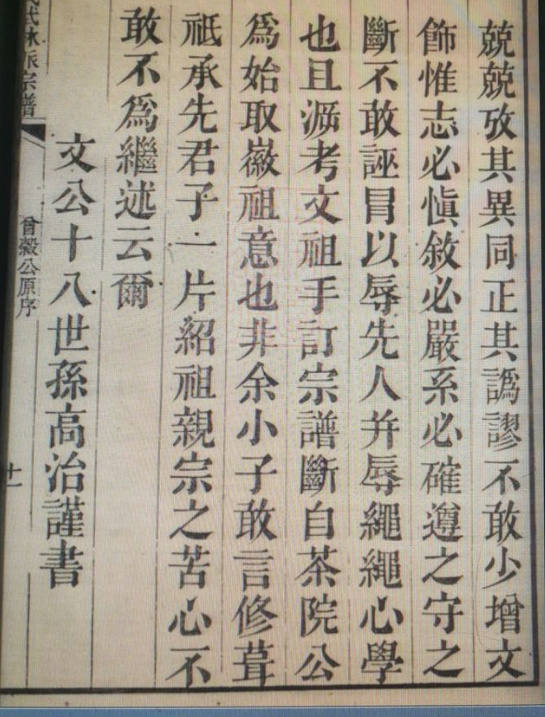 兢兢攷其異同正其譌謬不敢少增文
飾惟志必慎敘必嚴系必確遵之守之
斷不敢誣冐以辱先人并辱繩繩心學
也且泝考文祖手訂宗譜斷自茶院公
爲始取徽祖意也非余小子敢言修葺
祇承先君子一片紹祖親宗之苦心不
敢不爲繼述云爾
文公十八世孫高治謹書
派宗譜
曾穀公原序
十一